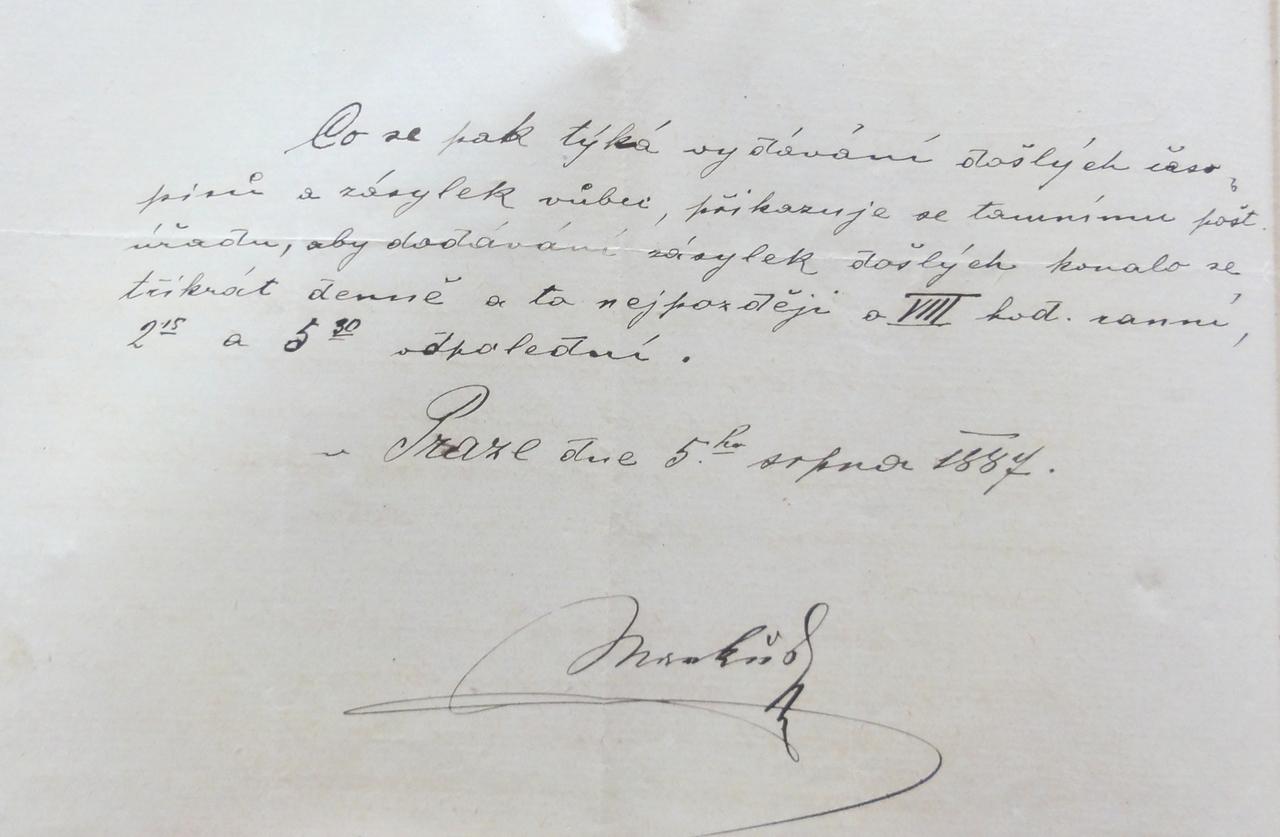 Co se pak týká vydávání došlých časo-
pisů a zásylek vůbec, přikazuje se tamnímu pošt.
úřadu, aby dodávání zásylek došlých konalo se
třikrát denně a to nejpozději o VIII hod. ranní,
2 15 a 5 30 odpolední.
v Praze dne 5. ho srpna 1887.